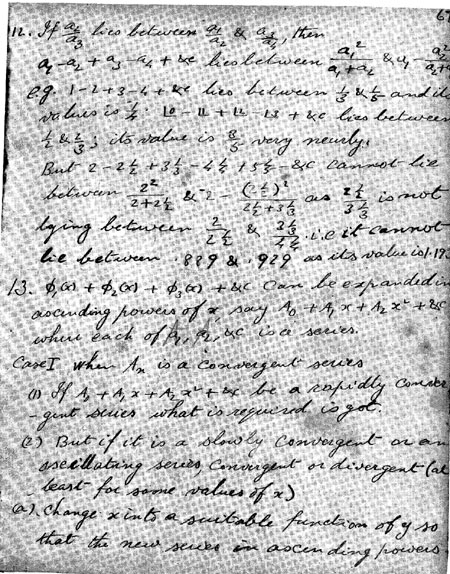 12. If a₂/a₃ lies between a₁/a₂ & a₃/a₄, then
a₁ - a₂ + a₃ - a₄ + &c lies between a₁²/(a₁+a₂) & a₁ - a₂²/(a₂+
e.g. 1-2+3-4+&c lies between 1/3 & 1/5 and its
value is 1/4.
½ & 2/3; its value is very nearly.
But 2 - 2½ + 3⅓ - 4¼ + 5⅕ - &c cannot lie
between 2²/(2+2½) & 2 - (2½)²/(2½+3⅓) as 2½/3⅓ is not
lying between 2/2½ & 3⅓/4¼ i.e it cannot
lie between .889 & .929 as its value is 1.193
13. φ₁(x) + φ₂(x) + φ₃(x) + &c can be expanded in
ascending powers of x, say A₀ + A₁x + A₂x² + &c
where each of &c is a series.
Case I when Aₙ is a convergent series
(1) If A₀ + A₁x + A₂x² + &c be a rapidly conver
-gent series what is required is got.
(2) But if it is a slowly convergent or an
oscillating series, convergent or divergent (at
least for some values of x)
(a). Change x into a suitable function of y so
that the new series in ascending powers